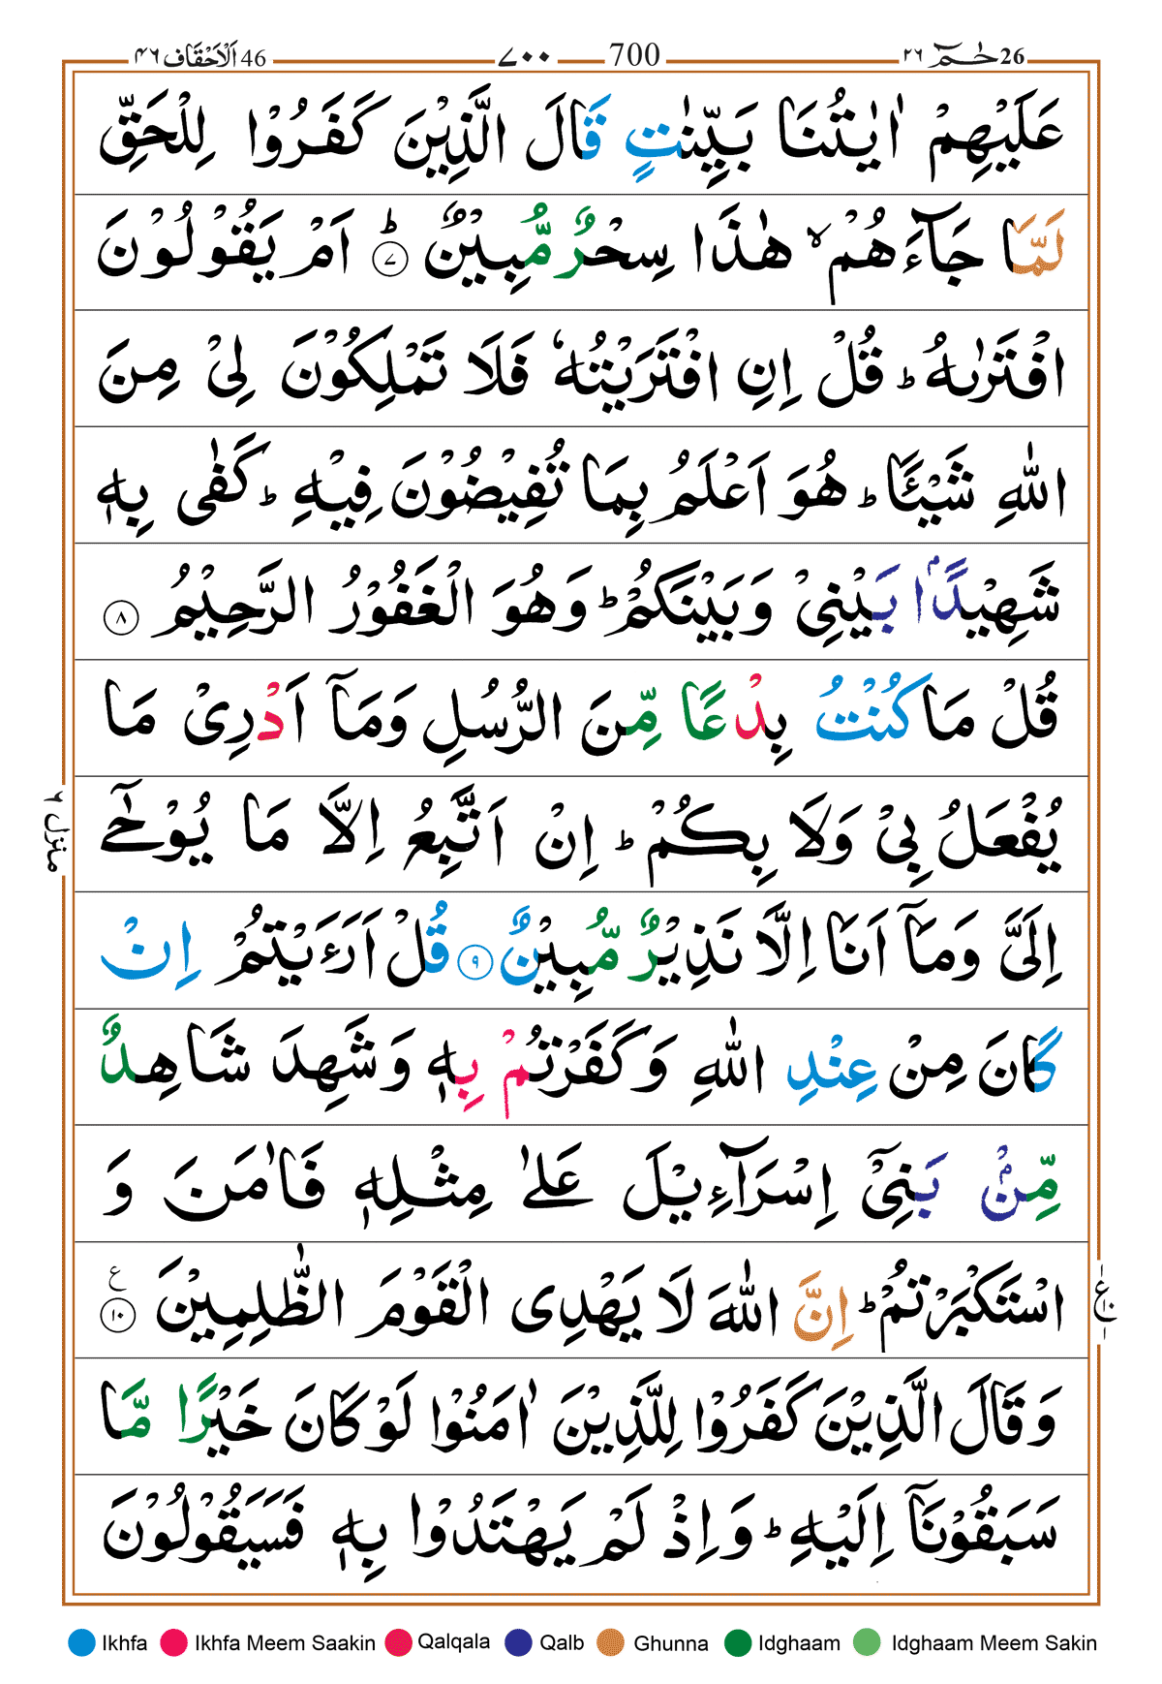 46 اَلْاَحْقَاف ٤٦
٧٠٠ 700
26 حٰـمٓ ٢٦
عَلَيْهِمْ اٰيٰتُنَا بَيِّنٰتٍ قَالَ الَّذِيْنَ كَفَرُوْا لِلْحَقِّ
لَمَّا جَآءَهُمْ ۙ هٰذَا سِحْرٌ مُّبِيْنٌ ؕ ۷ اَمْ يَقُوْلُوْنَ
افْتَرٰىهُ ؕ قُلْ اِنِ افْتَرَيْتُهٗ فَلَا تَمْلِكُوْنَ لِىْ مِنَ
اللّٰهِ شَيْـًٔا ؕ هُوَ اَعْلَمُ بِمَا تُفِيْضُوْنَ فِيْهِ ؕ كَفٰى بِهٖ
شَهِيْدًۢا بَيْنِىْ وَبَيْنَكُمْ ؕ وَهُوَ الْغَفُوْرُ الرَّحِيْمُ ۸
قُلْ مَا كُنْتُ بِدْعًا مِّنَ الرُّسُلِ وَمَآ اَدْرِىْ مَا
يُفْعَلُ بِىْ وَلَا بِكُمْ ؕ اِنْ اَتَّبِعُ اِلَّا مَا يُوْحٰٓى
اِلَىَّ وَمَآ اَنَا اِلَّا نَذِيْرٌ مُّبِيْنٌ ۹ قُلْ اَرَءَيْتُمْ اِنْ
كَانَ مِنْ عِنْدِ اللّٰهِ وَكَفَرْتُمْ بِهٖ وَشَهِدَ شَاهِدٌ
مِّنْۢ بَنِىْٓ اِسْرَآءِيْلَ عَلٰى مِثْلِهٖ فَاٰمَنَ وَ
اسْتَكْبَرْتُمْ ؕ اِنَّ اللّٰهَ لَا يَهْدِى الْقَوْمَ الظّٰلِمِيْنَ ۱۰ ع
وَقَالَ الَّذِيْنَ كَفَرُوْا لِلَّذِيْنَ اٰمَنُوْا لَوْ كَانَ خَيْرًا مَّا
سَبَقُوْنَآ اِلَيْهِ ؕ وَاِذْ لَمْ يَهْتَدُوْا بِهٖ فَسَيَقُوْلُوْنَ
منزل ٦
Ikhfa Ikhfa Meem Saakin Qalqala Qalb Ghunna Idghaam Idghaam Meem Sakin